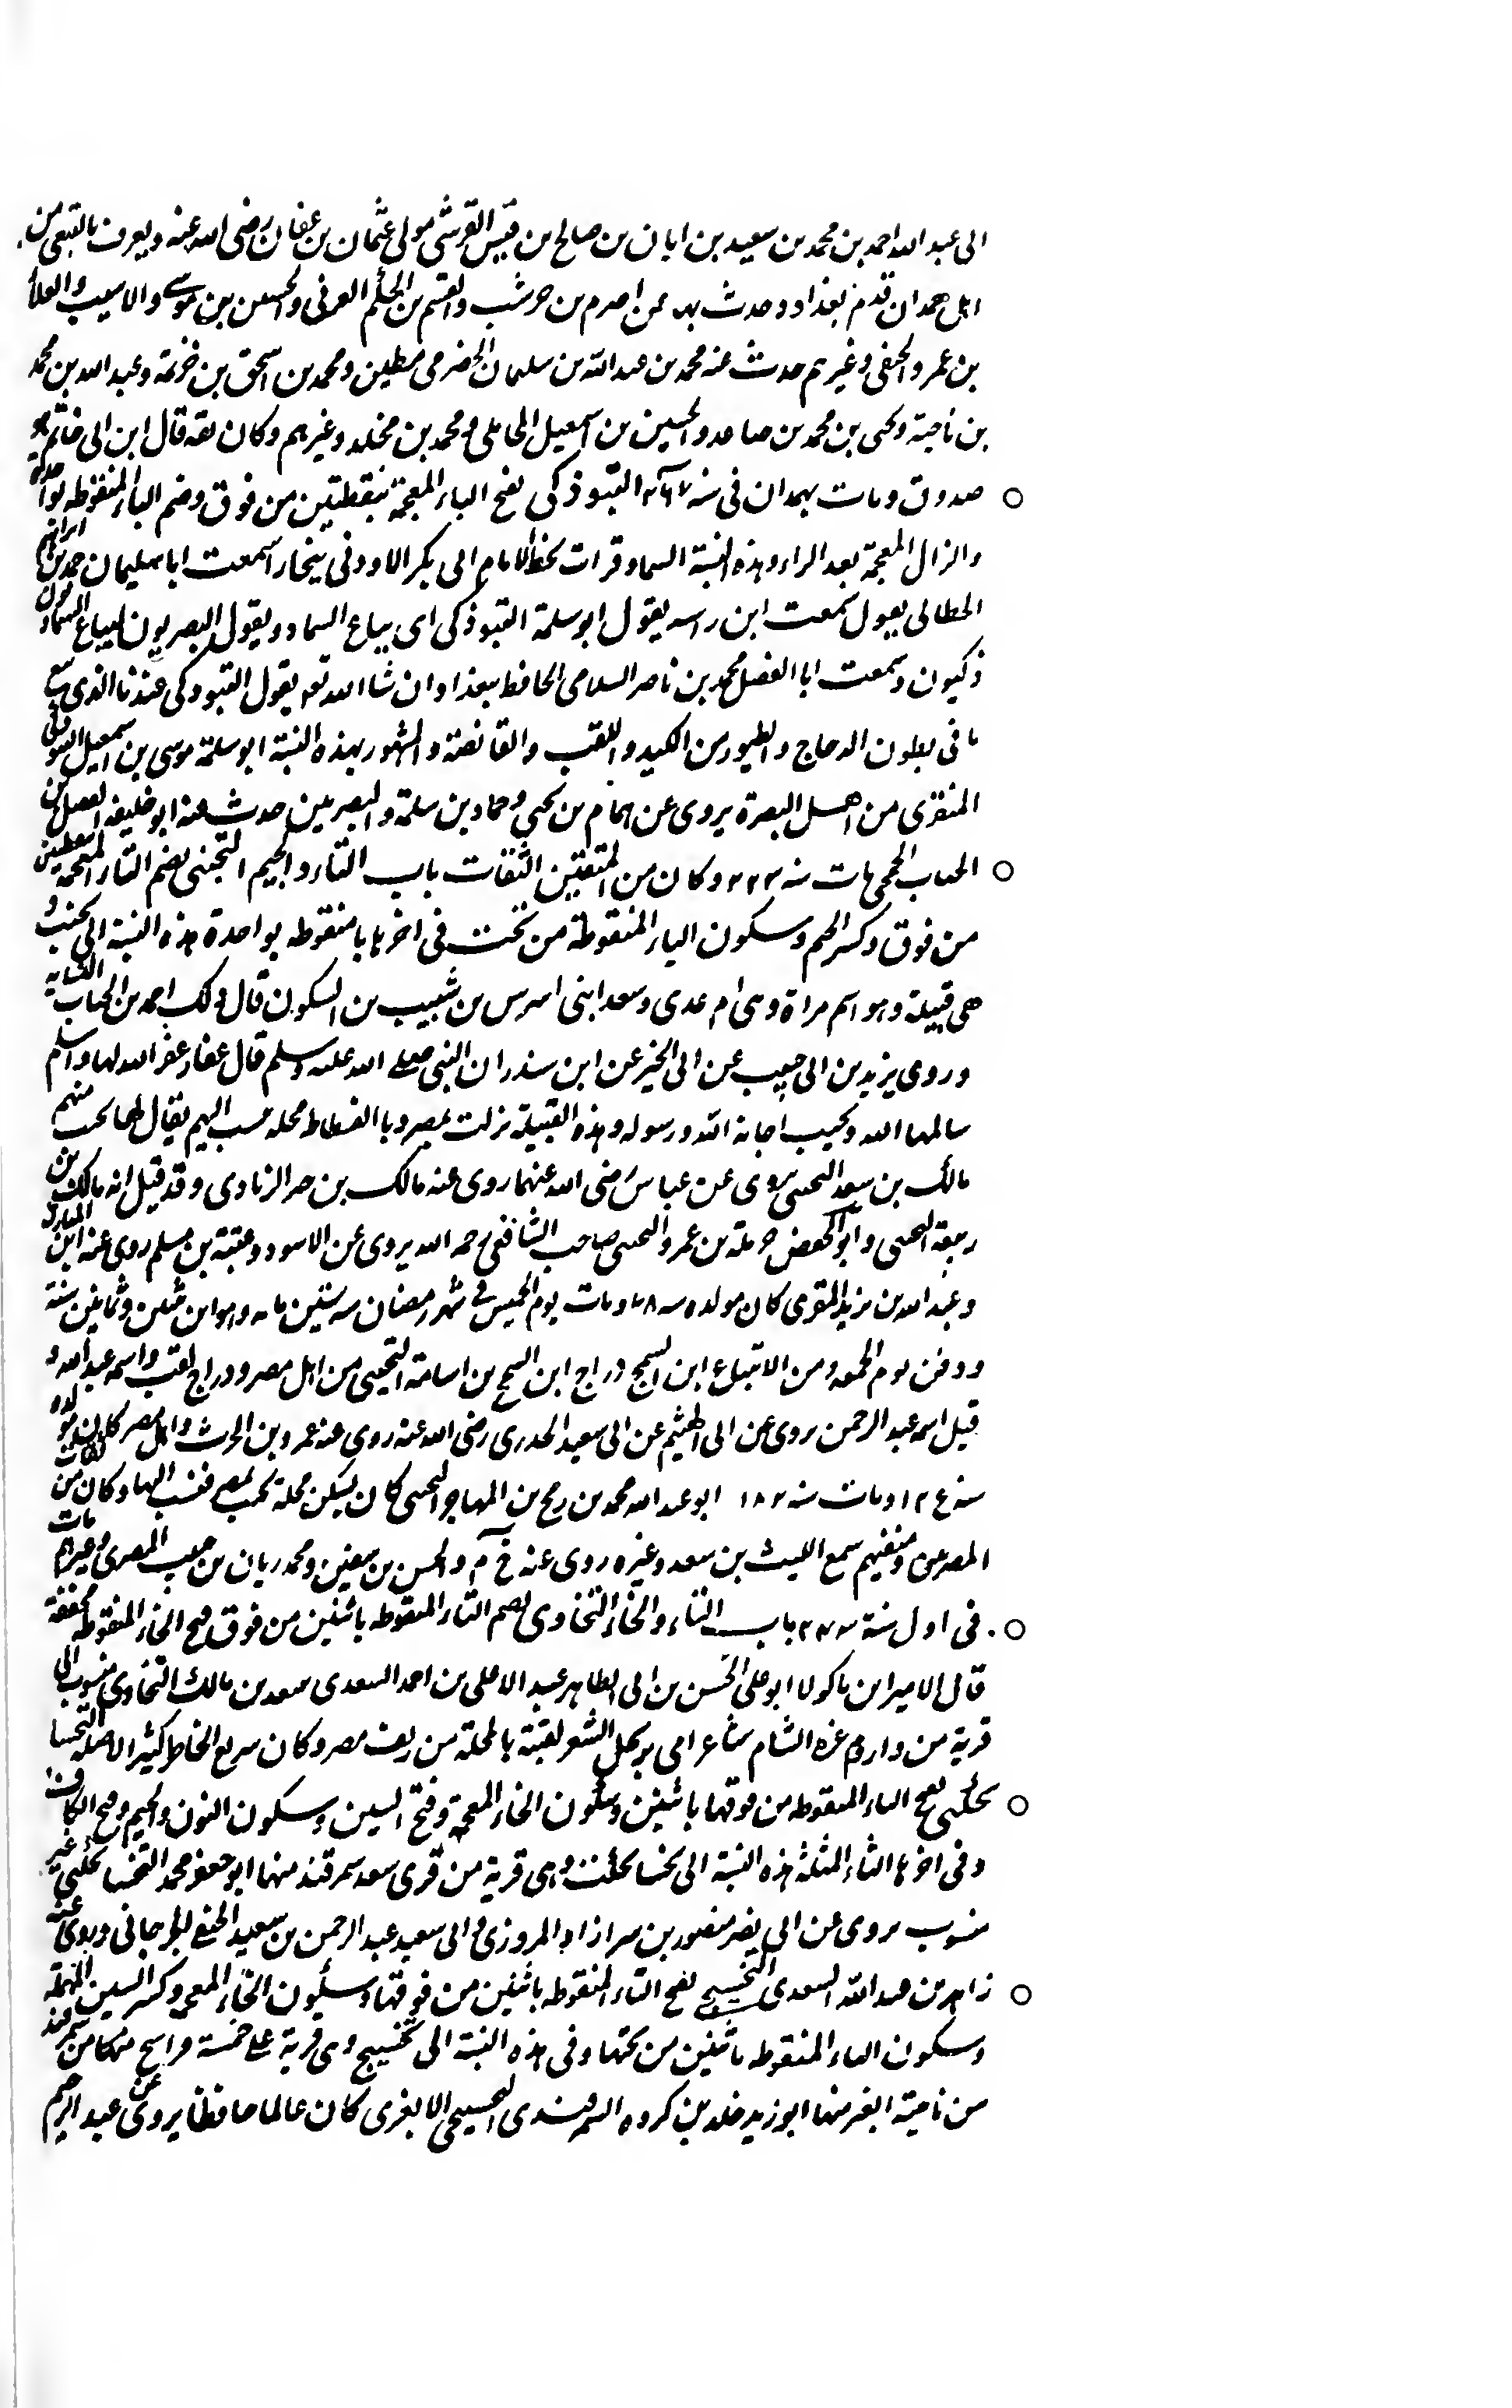 الى عبد الله احمد بن محمد بن سعيد بن ابان بن صالح بن قيس القرشى مولى عثمان بن عفان رضى الله عنه ويعرف بالتبعى من
اهل همدان قدم بغداد وحدث بها عن اصرم بن حوشب والقسم بن الحكم العرنى والحسن بن موسى الاشيب والعلاء
بن عمرو الحنفى وغيرهم حدث عنه محمد بن عبد الله بن سليمان الحضرمى مطين ومحمد بن اسحق بن خزيمة وعبد الله بن محمد
بن ناجية ويحيى بن محمد بن صاعد والحسين بن اسمعيل المحاملى ومحمد بن مخلد وغيرهم وكان ثقه قال ابن ابى حاتم هو
صدوق ومات بهمدان فى سنه ٢٦٧ التبوذكى بفتح التاء المعجمة بنقطتين من فوق وضم الباء المنقوطه بواحدة
والذال المعجمة بعد الواو هذه النسبة السماد قرات بخط الامام ابى بكر الاودنى ببخارا سمعت ابا سليمان حمد بن ابراهيم
الخطابى يقول سمعت ابن داسه يقول ابو سلمة التبوذكى اى بياع السماد ويقول البصريون لبياع السماد تبو
ذكيون وسمعت ابا الفضل محمد بن ناصر السلامى الحافظ ببغداد ان شا الله تع يقول التبوذكى عندنا الذى يبيع
ما فى بطون الدجاج والطيور من الكبد والقلب والقانصة والمشهور بهذه النسبة ابو سلمة موسى بن اسمعيل التبوذكى
المنقرى من اهل البصرة يروى عن همام بن يحيى وحماد بن سلمة والبصريين حدث عنه ابو خليفه الفضل بن
الحباب الجمحى مات سنه ٢٢٣ وكان من المتقنين الثقات باب التاء والجيم التجيبى بضم التاء المعجمة بنقطتين
من فوق وكسر الجيم وسكون الياء المنقوطة من تحت فى اخرها با منقوطه بواحدة هذه النسبة الى تجيب و
هى قبيلة وهو اسم مراة وهى ام عدى وسعد ابنى اشرس بن شبيب بن السكون قال ذلك احمد بن الحباب النسابه
وروى يزيد بن ابى حبيب عن ابى الخير عن ابن سندر ان النبى صلى الله عليه وسلم قال غفار غفر الله لها واسلم
سالمها الله وتجيب اجابة الله ورسوله وهذه القبيلة نزلت بمصر وبا الفسطاط محله نسب اليهم يقال لها تجيب منهم
مالك بن سعد التجيبى يروى عن عباس رضى الله عنهما روى عنه مالك بن خير الزبادى وقد قيل انه مالك بن
ربيعة التجيبى وابو حفص حرملة بن عمرو التجيبى صاحب الشافعى رحمه الله يروى عن الاسود وعقبة بن مسلم روى عنه ابن المبارك
وعبد الله بن يزيد المقرى كان مولده سه ٨٠ ومات يوم الخميس فى شهر رمضان سه ستين مايه وهو ابن ثمانين سنة
ودفن يوم الجمعه ومن الاتباع ابن السمح دراج ابن السمح بن اسامة التجيبى من اهل مصر ودراج لقب واسمه عبد الله و
قيل اسمه عبد الرحمن يروى عن ابى الهيثم عن ابى سعيد الخدرى رضى الله عنه روى عنه عمرو بن الحرث واهل مصر كان مولده
سنه ١٢٤ ومات سنه ١٨٢ ابو عبد الله محمد بن رمح بن المهاجر التجيبى كان يسكن محلة تجيب بمصر فنسب اليها وكان من ثقات
المصريين ومتقنيهم سمع الليث بن سعد وغيره روى عنه خ م والحسن بن سفين ومحمد بن ريان بن حبيب المصرى وغيرهم مات
فى اول سنة ٢٤٣ باب التاء والخاء التخاوى بضم التاء المنقوطه باثنتين من فوق وفتح الخاء المنقوطه مخففة
قال الامير ابن ماكولا ابو على الحسن بن ابى الطاهر عبد الاعلى بن احمد السعدى سعد بن مالك التخاوى منسوب الى
قرية من داروم غزه الشام شاعر امى يرتجل الشعر لقيته بالمحلة من ريف مصر وكان سريع الخاطر كثير الاصابه التخسا
نجكثى بفتح التاء المنقوطه من فوقها باثنتين وسكون الخاء المعجمة وفتح السين وسكون النون والجيم وفتح الكاف
وفى اخرها الثاء المثلثه هذه النسبة الى تخسانجكث وهى قرية من قرى سغد سمرقند منها ابو جعفر محمد التخسانجكثى غير
منسوب يروى عن ابى نصر منصور بن شهرازاد المروزى وابى سعيد عبد الرحمن بن سعيد الحنفى الجرجانى وروى عنه
زاهر بن عبد الله السعدى التخسيجى بفتح التاء المنقوطه باثنتين من فوقها وسكون الخاء المعجمه وكسر السين المهملة
وسكون الياء المنقوطه باثنتين من تحتها وفى هذه النسبة الى تخسيج وهى قرية على خمسة فراسخ منها من سمرقند
من ناحية ابغر منها ابو زيد خلد بن كرده السمرقندى التخسيجى الابغرى كان عالما حافظا يروى عن عبد الرحيم